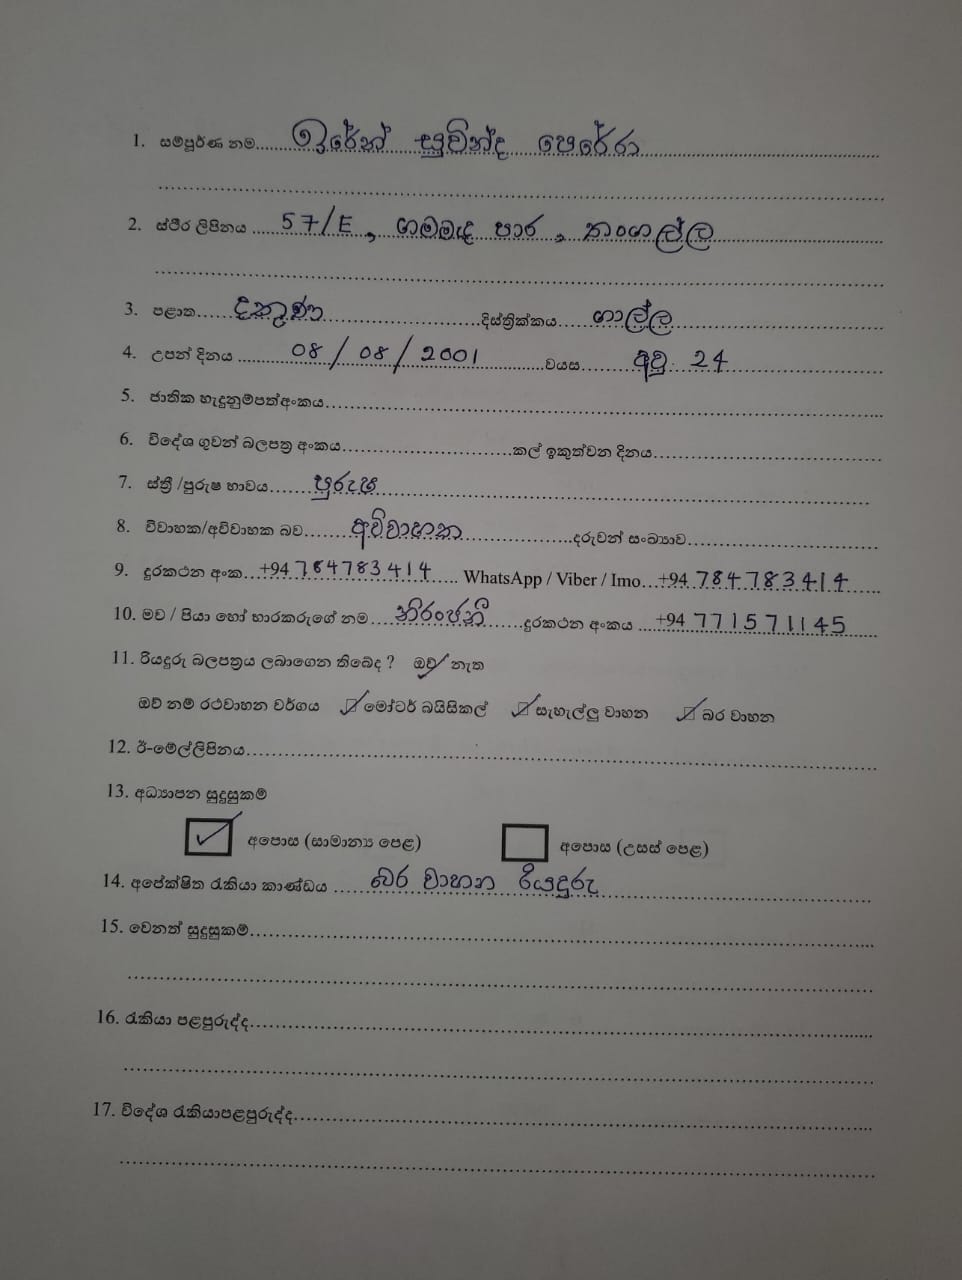 1. සම්පූර්ණ නම......ඉරේෂ් සුවින්ද පෙරේරා
2. ස්ථිර ලිපිනය ....57/E, ගමමැද පාර, තංගල්ල
3. පළාත......දකුණ ......දිස්ත්‍රික්කය......ගාල්ල
4. උපන් දිනය ......08/08/2001 ......වයස......අවු. 24
5. ජාතික හැඳුනුම්පත්අංකය......
6. විදේශ ගුවන් බලපත්‍ර අංකය......කල් ඉකුත්වන දිනය......
7. ස්ත්‍රී /පුරුෂ භාවය......පුරුෂ
8. විවාහක/අවිවාහක බව......අවිවාහක ......දරුවන් සංඛ්‍යාව......
9. දුරකථන අංක...+94 784783414 ...... WhatsApp / Viber / Imo...+94 784783414
10. මව / පියා හෝ භාරකරුගේ නම ......නිරංජනී ......දුරකථන අංකය ...+94 771571145
11. රියදුරු බලපත්‍රය ලබාගෙන තිබේද ? ඔව්✓ නැත
ඔව් නම් රථවාහන වර්ගය ☑ මෝටර් බයිසිකල් ☑ සැහැල්ලු වාහන ☑ බර වාහන
12. ඊ-මේල්ලිපිනය......
13. අධ්‍යාපන සුදුසුකම්
☑ අපොස (සාමාන්‍ය පෙළ) ☐ අපොස (උසස් පෙළ)
14. අපේක්ෂිත රැකියා කාණ්ඩය ......බර වාහන රියදුරු
15. වෙනත් සුදුසුකම්......
16. රැකියා පළපුරුද්ද......
17. විදේශ රැකියාපළපුරුද්ද......